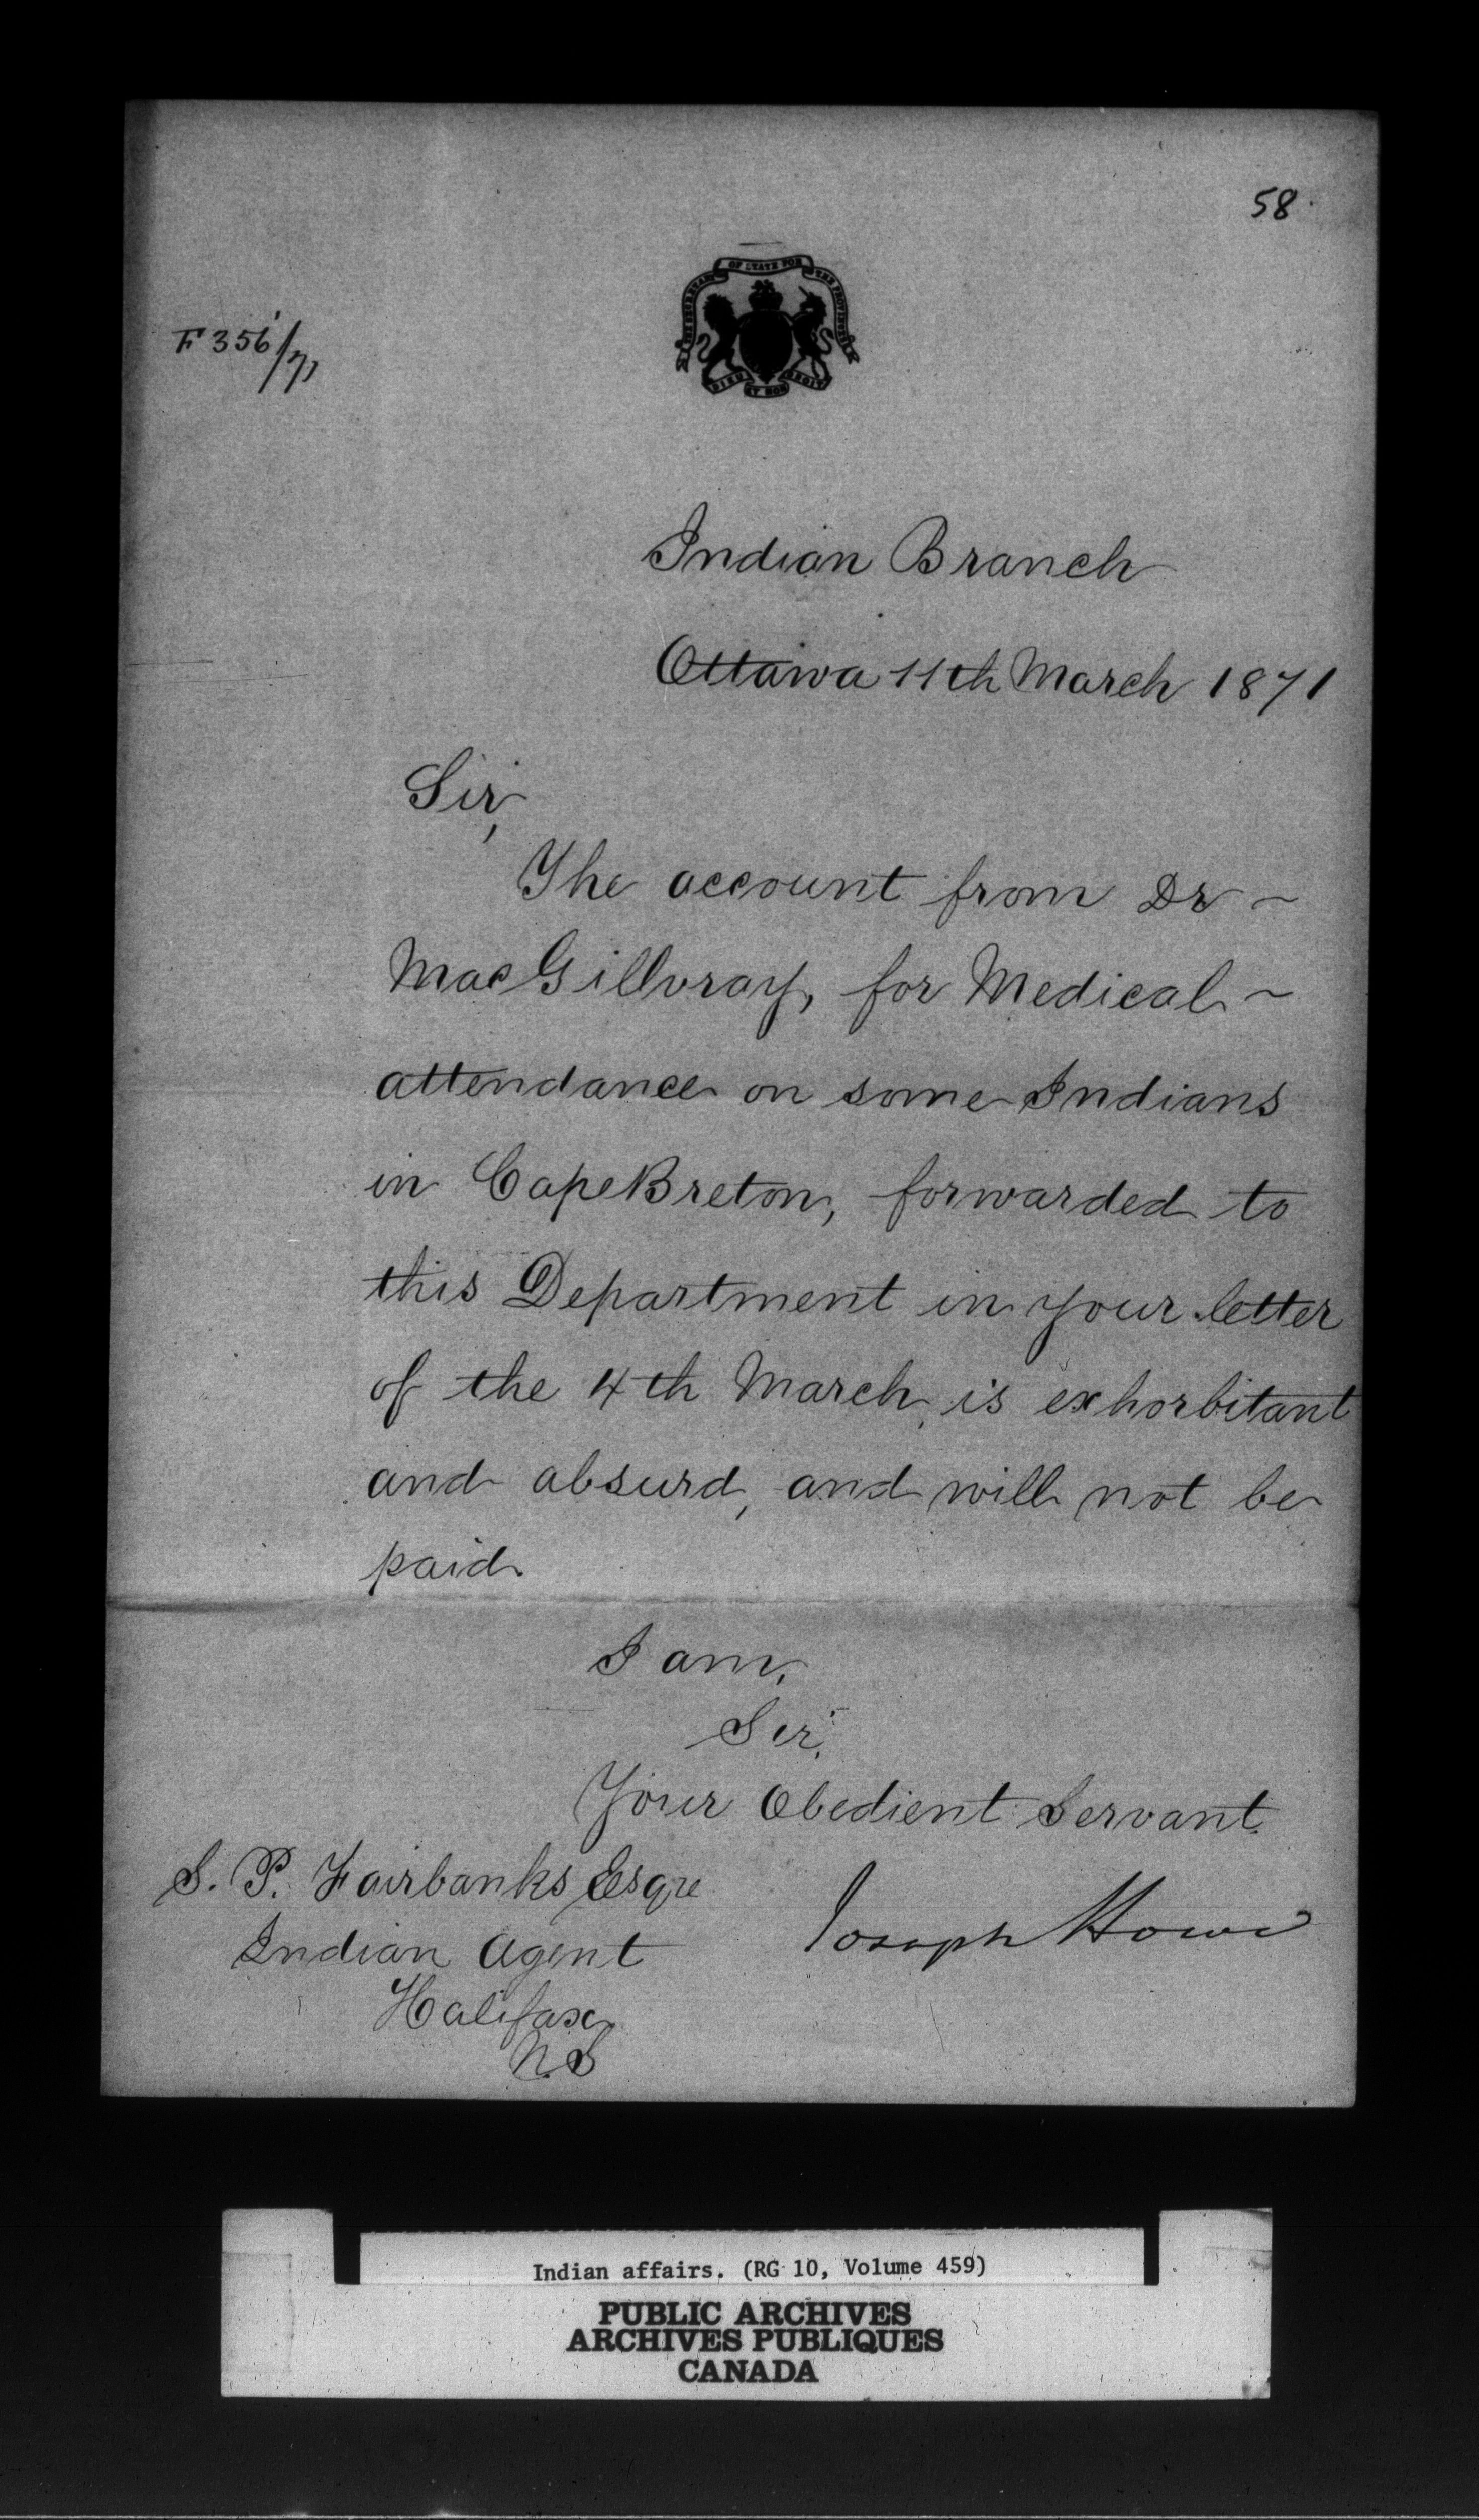 58.
F 356/71
THE SECRETARY OF STATE FOR THE PROVINCES
DIEU ET MON DROIT
Indian Branch
Ottawa 11th March 1871
Sir,
The account from Dr ~
MacGillvray, for Medical ~
attendance on some Indians
in Cape Breton, forwarded to
this Department in your letter
of the 4th March, is exhorbitant
and absurd, and will not be
paid.
I am,
Sir,
Your Obedient Servant.
Joseph Howe
S. P. Fairbanks Esqre
Indian Agent
Halifax
N.S
Indian affairs. (RG 10, Volume 459)
PUBLIC ARCHIVES
ARCHIVES PUBLIQUES
CANADA